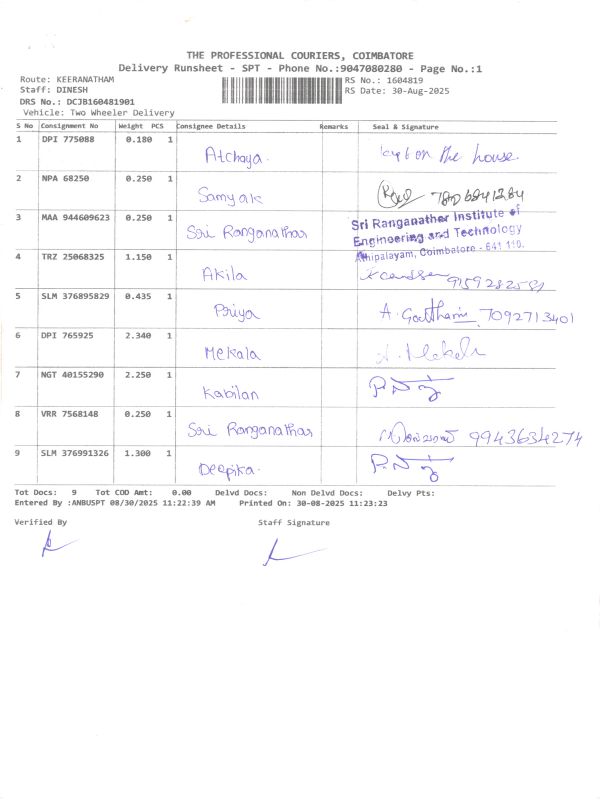 THE PROFESSIONAL COURIERS, COIMBATORE
Delivery Runsheet - SPT - Phone No.:9047080280 - Page No.:1
Route: KEERANATHAM
RS No.: 1604819
Staff: DINESH
RS Date: 30-Aug-2025
DRS No.: DCJB160481901
Vehicle: Two Wheeler Delivery
S No Consignment No Weight PCS Consignee Details Remarks Seal & Signature
1 DPI 775088 0.180 1 Atchaya. kept on the house.
2 NPA 68250 0.250 1 Samyak
3 MAA 944609623 0.250 1 Sri Ranganathar Sri Ranganathar Institute of
Engineering and Technology
Athipalayam, Coimbatore - 641 110.
4 TRZ 25068325 1.150 1 Akila
5 SLM 376895829 0.435 1 Priya A. Goutham 7092713401
6 DPI 765925 2.340 1 Mekala A. Mekala
7 NGT 40155290 2.250 1 Kabilan
8 VRR 7568148 0.250 1 Sri Ranganathar 9943634274
9 SLM 376991326 1.300 1 Deepika.
Tot Docs: 9 Tot COD Amt: 0.00 Delvd Docs: Non Delvd Docs: Delvy Pts:
Entered By :ANBUSPT 08/30/2025 11:22:39 AM Printed On: 30-08-2025 11:23:23
Verified By Staff Signature